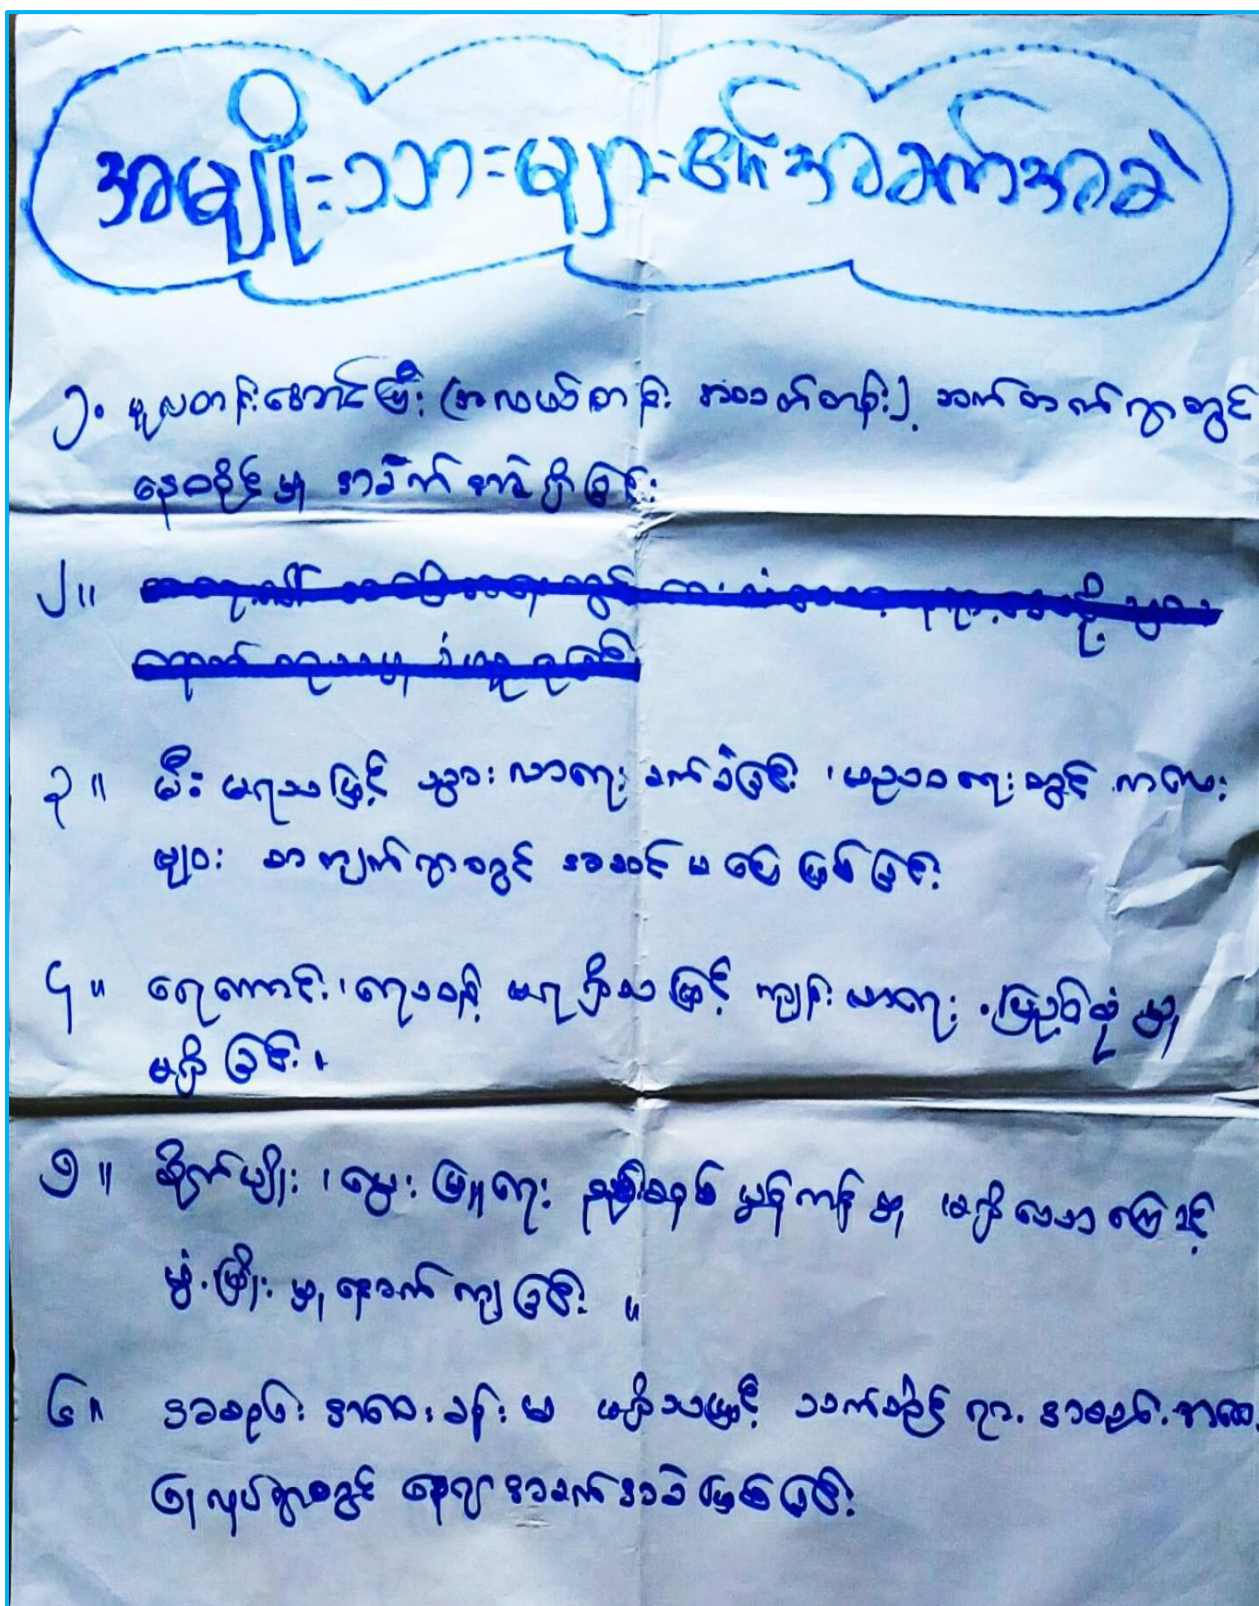 အမျိုးသားများ၏အခက်အခဲ
၁။ မူလတန်းအောင်ပြီး (အလယ်တန်း အထက်တန်း) ဆက်တက်ရာတွင်
နေထိုင်မှု အခက်အခဲရှိခြင်း
၂။
၃။ မီးမရသဖြင့် သွားလာရေး ခက်ခဲခြင်း ၊ ပညာရေးတွင် ကလေး
များ စာကျက်ရာတွင် အဆင်မပြေဖြစ်ခြင်း
၄။ ရေကောင်း ၊ ရေသန့် မရရှိသဖြင့် ကျန်းမာရေး ပြည့်စုံမှု
မရှိခြင်း ။
၅။ စိုက်ပျိုး ၊ မွေးမြူရေး နည်းစနစ် မှန်ကန်မှု မရှိသောကြောင့်
ဖွံ့ဖြိုးမှု နောက်ကျခြင်း ။
၆။ အစည်းအဝေးခန်းမ မရှိသဖြင့် သက်ဆိုင်ရာ အစည်းအဝေး
ပြုလုပ်ရာတွင် နေရာအခက်အခဲဖြစ်ခြင်း